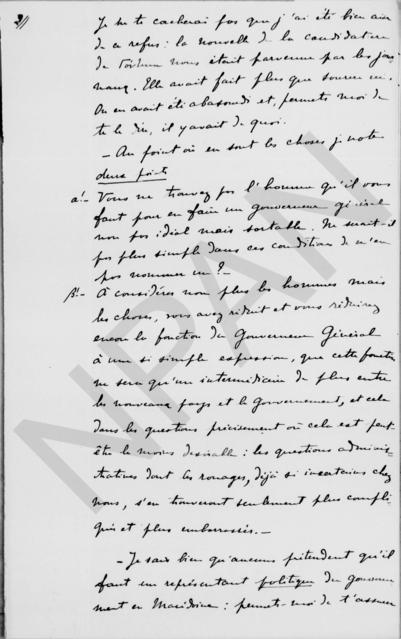 3//
Je ne te cacherai pas que j'ai été bien aise
de ce refus : la nouvelle de la candidature
de était parvenue par les jour
naux. Elle avait fait plus que sourire ici.
On en avait été abasourdi et, permets moi de
te le dire, il y avait de quoi.
– Au point où en sont les choses je note
deux points
α'.– Vous ne trouvez pas l'homme qu'il vous
faut pour en faire un gouverneur général
non pas idéal mais sortable. Ne serait-il
pas plus simple dans ces conditions de n'en
pas nommer un ? –
β'.– À considérer non plus les hommes mais
les choses, vous avez réduit et vous réduirez
encore la fonction du Gouverneur Général
à une si simple expression, que cette fonction
ne sera qu'un intermédiaire de plus entre
les nouveaux pays et le Gouvernement, et cela
dans les questions précisement où cela est peut
être le moins desirable : les questions adminis-
tratives dont les rouages, déjà si incertains chez
nous, s'en trouveront seulement plus compli
qués et plus embarrassés. –
– Je sais bien qu'aucuns prétendent qu'il
faut un représentant politique du gouverne
ment en Macédoine : permets-moi de t'assurer
NPAN